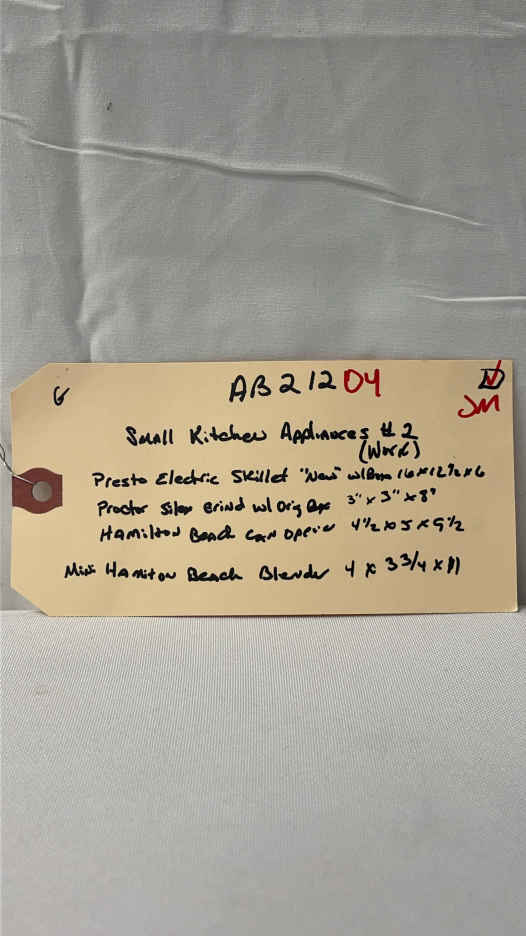 G
AB21204
D
JM
Small Kitchen Appliances #2
(Work)
Presto Electric Skillet "New" w/Box 16 x 12½ x 6
Proctor Silex Grind w/ Orig Box 3" x 3" x 8"
Hamilton Beach Can Opener 4½ x 5 x 9½
Mini Hamiton Beach Blender 4 x 3 3/4 x 11